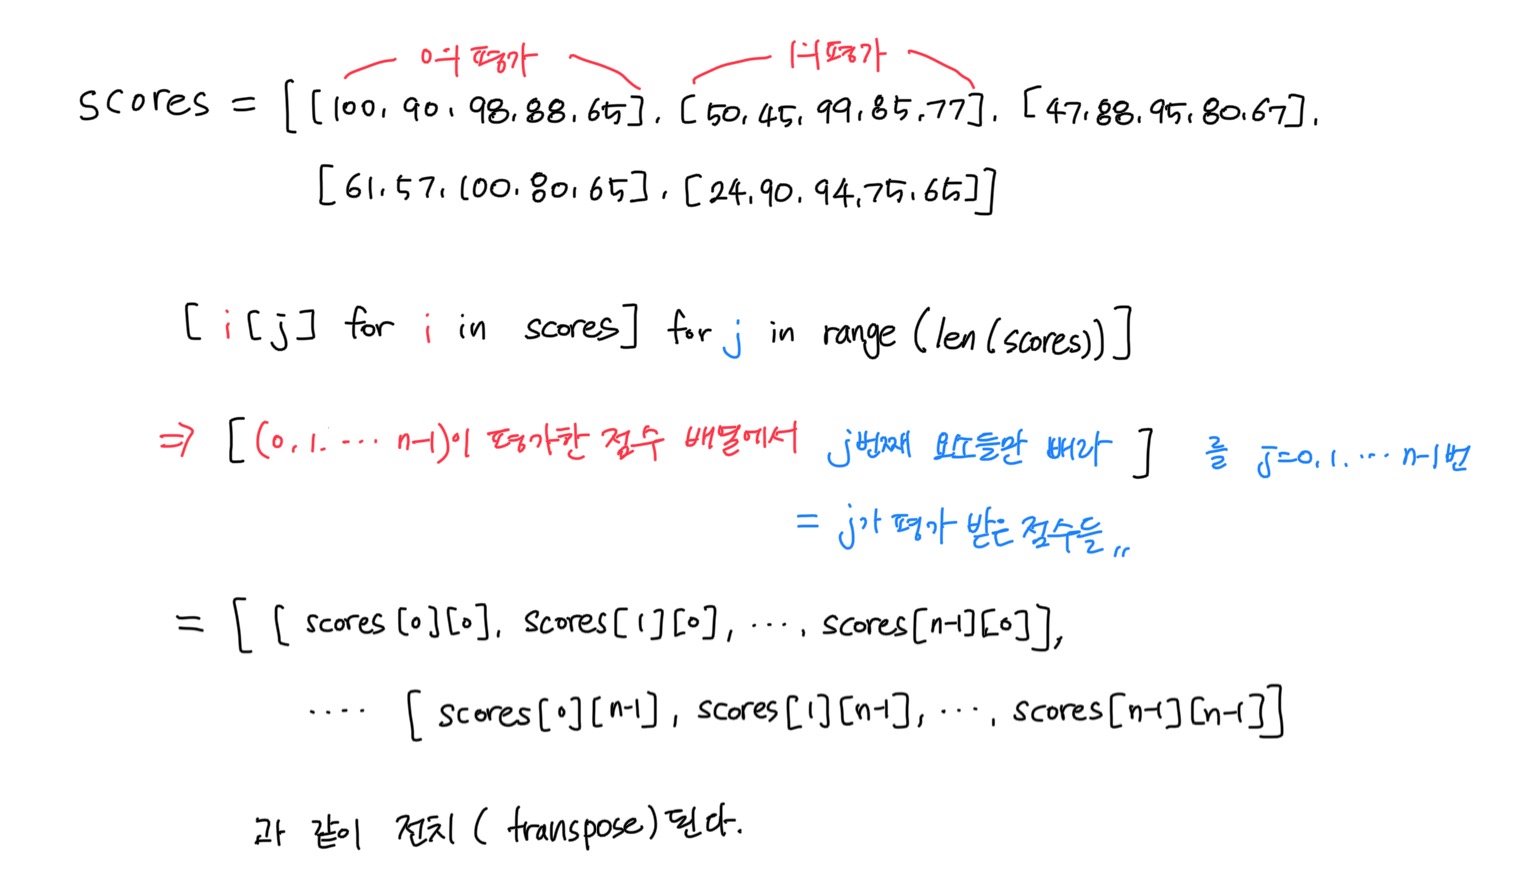 0의 평가 1의 평가
scores = [[100, 90, 98, 88, 65], [50, 45, 99, 85, 77], [47, 88, 95, 80, 67],
[61, 57, 100, 80, 65], [24, 90, 94, 75, 65]]
[i[j] for i in scores] for j in range(len(scores))]
⇒ [(0, 1, ... n-1)이 평가한 점수 배열에서 j번째 요소들만 빼라] 를 j=0, 1, ... n-1번
= j가 평가 받은 점수들,,
= [[scores[0][0], scores[1][0], ..., scores[n-1][0]],
.... [scores[0][n-1], scores[1][n-1], ..., scores[n-1][n-1]]
과 같이 전치(transpose)된다.